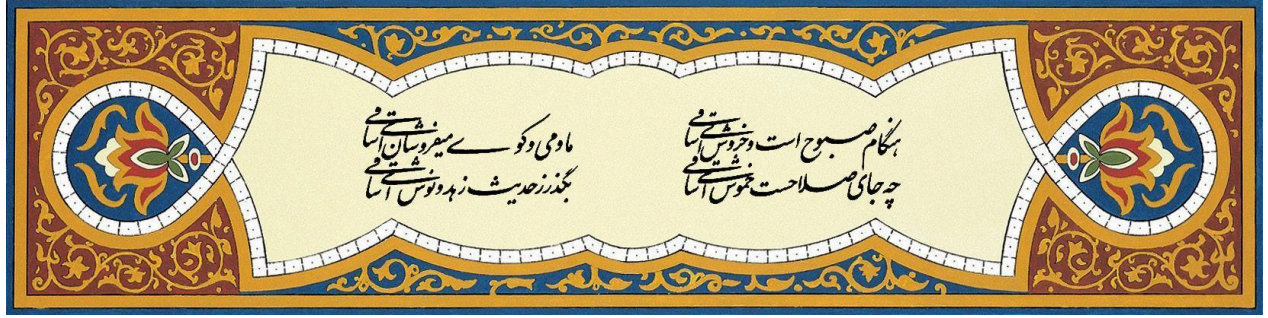 هنگام صبوح است و خروش است ای ساقی
ما و می و کوے میفروشان است ای ساقی
چه جای صلاحست خموش است ای ساقی
بگذر ز حدیث زهد و نوش است ای ساقی